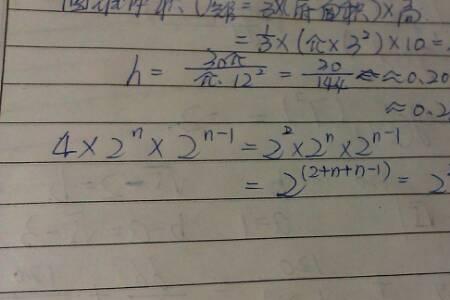 = 1/3 × (π × 3²) × 10 =
h = 30π / π · 12² = 30/144 ≈ 0.20
≈ 0.2
4 × 2ⁿ × 2ⁿ⁻¹ = 2² × 2ⁿ × 2ⁿ⁻¹
= 2⁽²⁺ⁿ⁺ⁿ⁻¹⁾ = 2